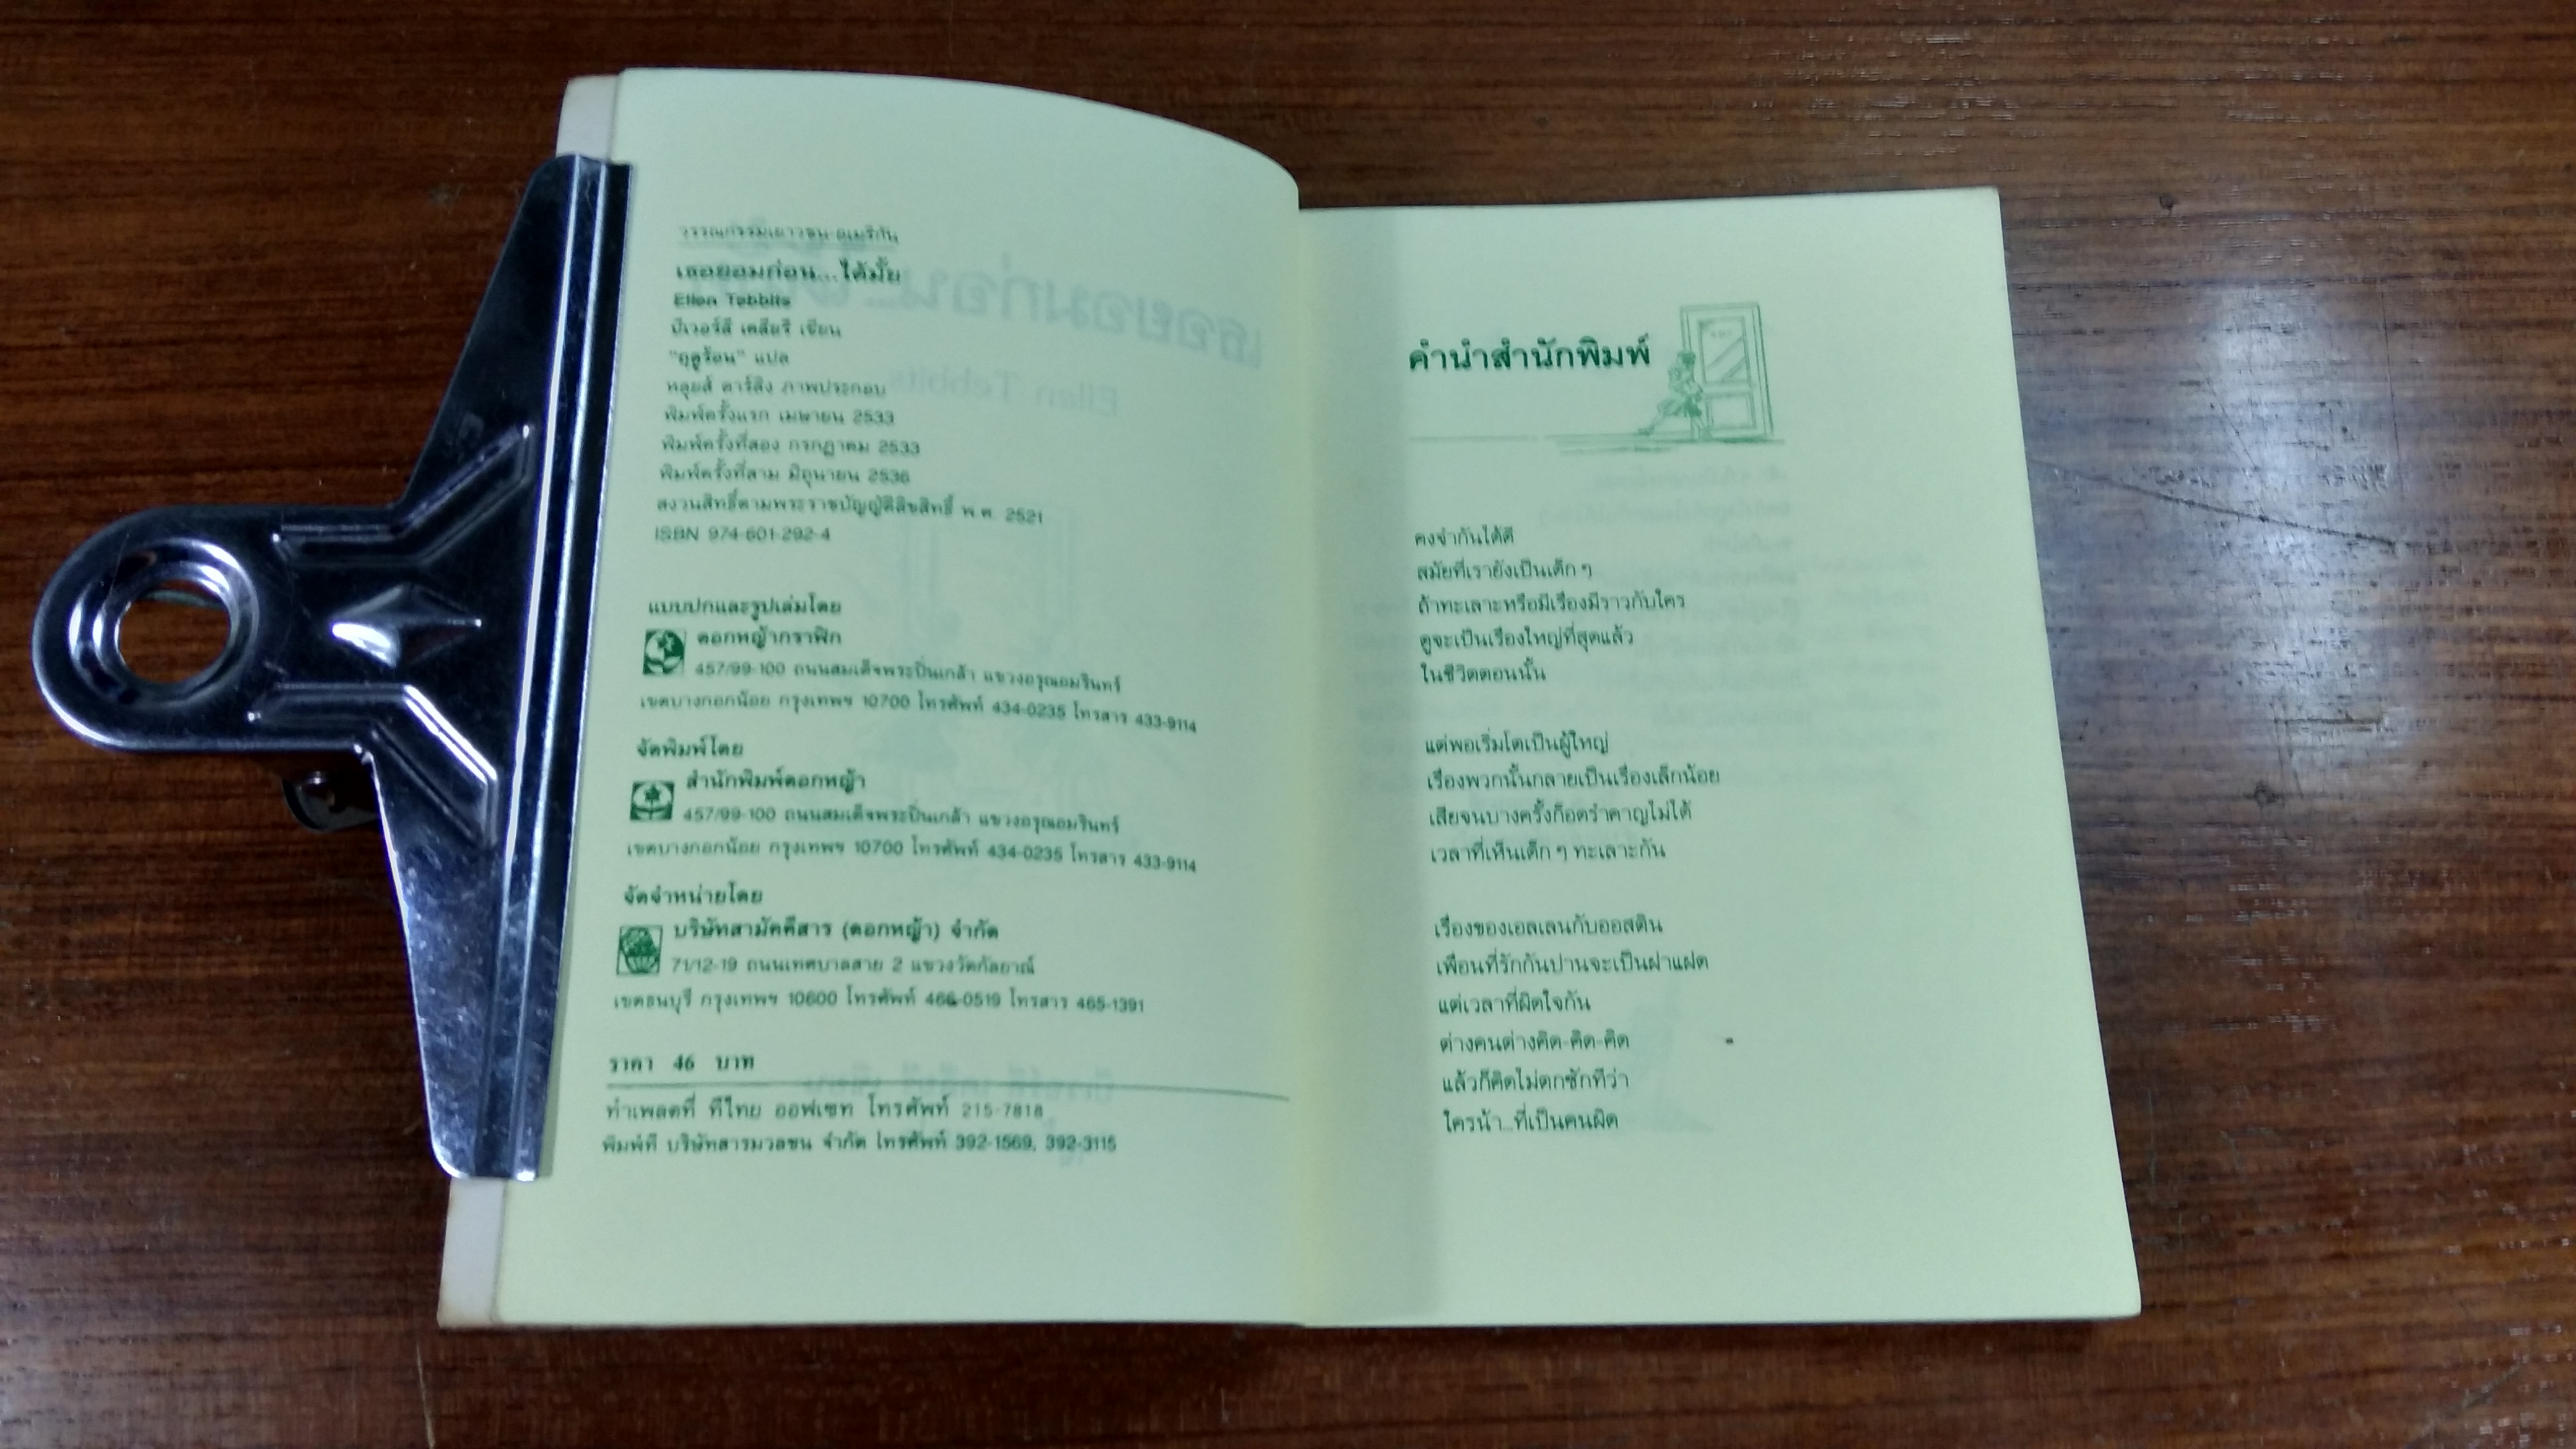 วรรณกรรมเยาวชน-อเมริกัน
เธอยอมก่อน...ได้มั้ย
Ellen Tebbits
บีเวอร์ลี เคลียรี เขียน
"ฤดูร้อน" แปล
หลุยส์ ดาร์ลิง ภาพประกอบ
พิมพ์ครั้งแรก เมษายน 2533
พิมพ์ครั้งที่สอง กรกฎาคม 2533
พิมพ์ครั้งที่สาม มิถุนายน 2536
สงวนสิทธิ์ตามพระราชบัญญัติลิขสิทธิ์ พ.ศ. 2521
ISBN 974-601-292-4
แบบปกและรูปเล่มโดย
ดอกหญ้ากราฟิก
457/99-100 ถนนสมเด็จพระปิ่นเกล้า แขวงอรุณอมรินทร์
เขตบางกอกน้อย กรุงเทพฯ 10700 โทรศัพท์ 434-0235 โทรสาร 433-9114
จัดพิมพ์โดย
สำนักพิมพ์ดอกหญ้า
457/99-100 ถนนสมเด็จพระปิ่นเกล้า แขวงอรุณอมรินทร์
เขตบางกอกน้อย กรุงเทพฯ 10700 โทรศัพท์ 434-0235 โทรสาร 433-9114
จัดจำหน่ายโดย
บริษัทสามัคคีสาร (ดอกหญ้า) จำกัด
71/12-19 ถนนเทศบาลสาย 2 แขวงวัดกัลยาณ์
เขตธนบุรี กรุงเทพฯ 10600 โทรศัพท์ 466-0519 โทรสาร 465-1391
ราคา 46 บาท
ทำเพลตที่ ทีไทย ออฟเซท โทรศัพท์ 215-7818
พิมพ์ที่ บริษัทสารมวลชน จำกัด โทรศัพท์ 392-1569, 392-3115
คำนำสำนักพิมพ์
คงจำกันได้ดี
สมัยที่เรายังเป็นเด็ก ๆ
ถ้าทะเลาะหรือมีเรื่องมีราวกับใคร
ดูจะเป็นเรื่องใหญ่ที่สุดแล้ว
ในชีวิตตอนนั้น
แต่พอเริ่มโตเป็นผู้ใหญ่
เรื่องพวกนั้นกลายเป็นเรื่องเล็กน้อย
เสียจนบางครั้งก็อดรำคาญไม่ได้
เวลาที่เห็นเด็ก ๆ ทะเลาะกัน
เรื่องของเอลเลนกับออสติน
เพื่อนที่รักกันปานจะเป็นฝาแฝด
แต่เวลาที่ผิดใจกัน
ต่างคนต่างคิด-คิด-คิด
แล้วก็คิดไม่ตกซักทีว่า
ใครน้า...ที่เป็นคนผิด